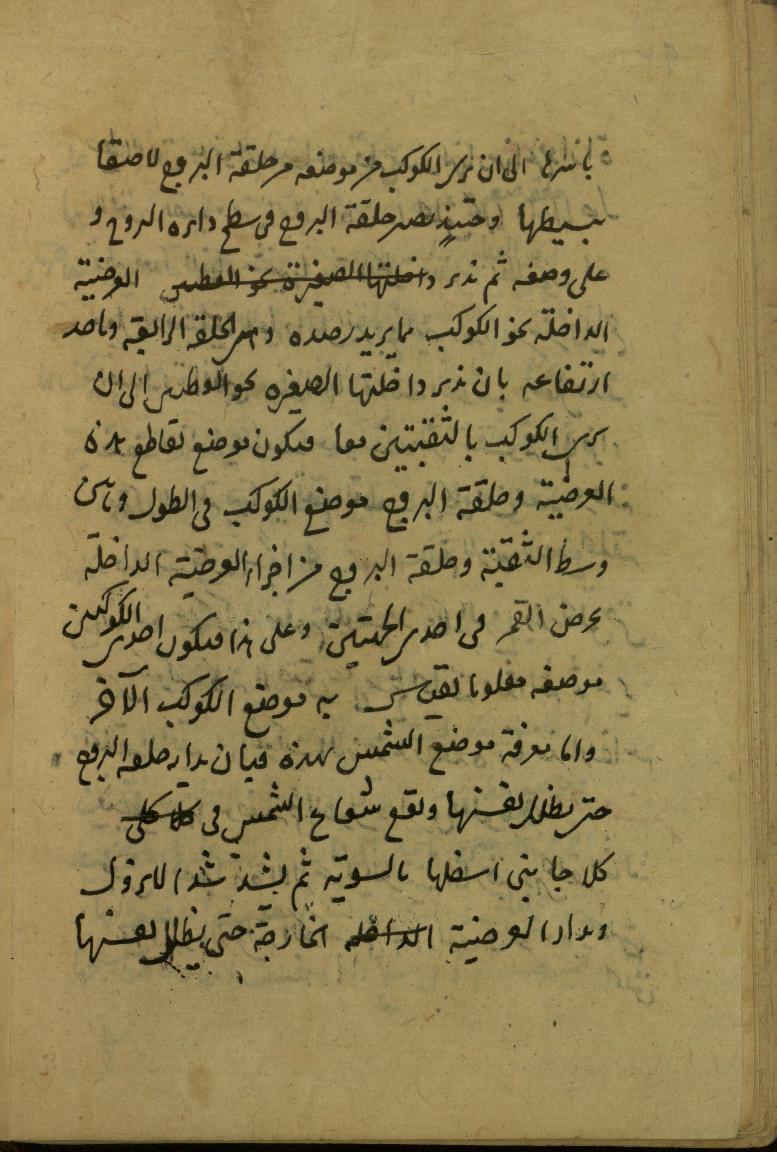 باسرها الى ان يرى الكوكب من موضعه من حلقة البروج لاصقا
ببسيطها وحينئذ يصير حلقة البروج فى سطح دائره البروج و
على وضعه ثم ندير داخلتها الصغيرة نحو القطبين العرضية
الداخلة نحو الكوكب مما يريد رصده و الحلقه الرابعه وناخذ
ارتفاعه بان ندير داخلتها الصغيره نحو القطبين الى ان
يرى الكوكب بالثقبتين معا فيكون موضع تقاطع هذه
العرضية وحلقة البروج موضع الكوكب فى الطول وما بين
وسط الثقبة وحلقة البروج من اجزاء العرضية الداخلة
عرض القمر فى احدى الجهتين وعلى هذا فيكون احدى الكوكبين
موضعه معلوما لقيس به موضع الكوكب الآخر
واما معرفة موضع الشمس بهذه فبان يدار حلقه البروج
حتى يظلل نفسها ويقع شعاع الشمس فى كلا كلى
كلا جانبى اسفلها بالسوية ثم يشد شدا لا يزول
ويدار العرضية الداخله الخارجة حتى يظلل نفسها